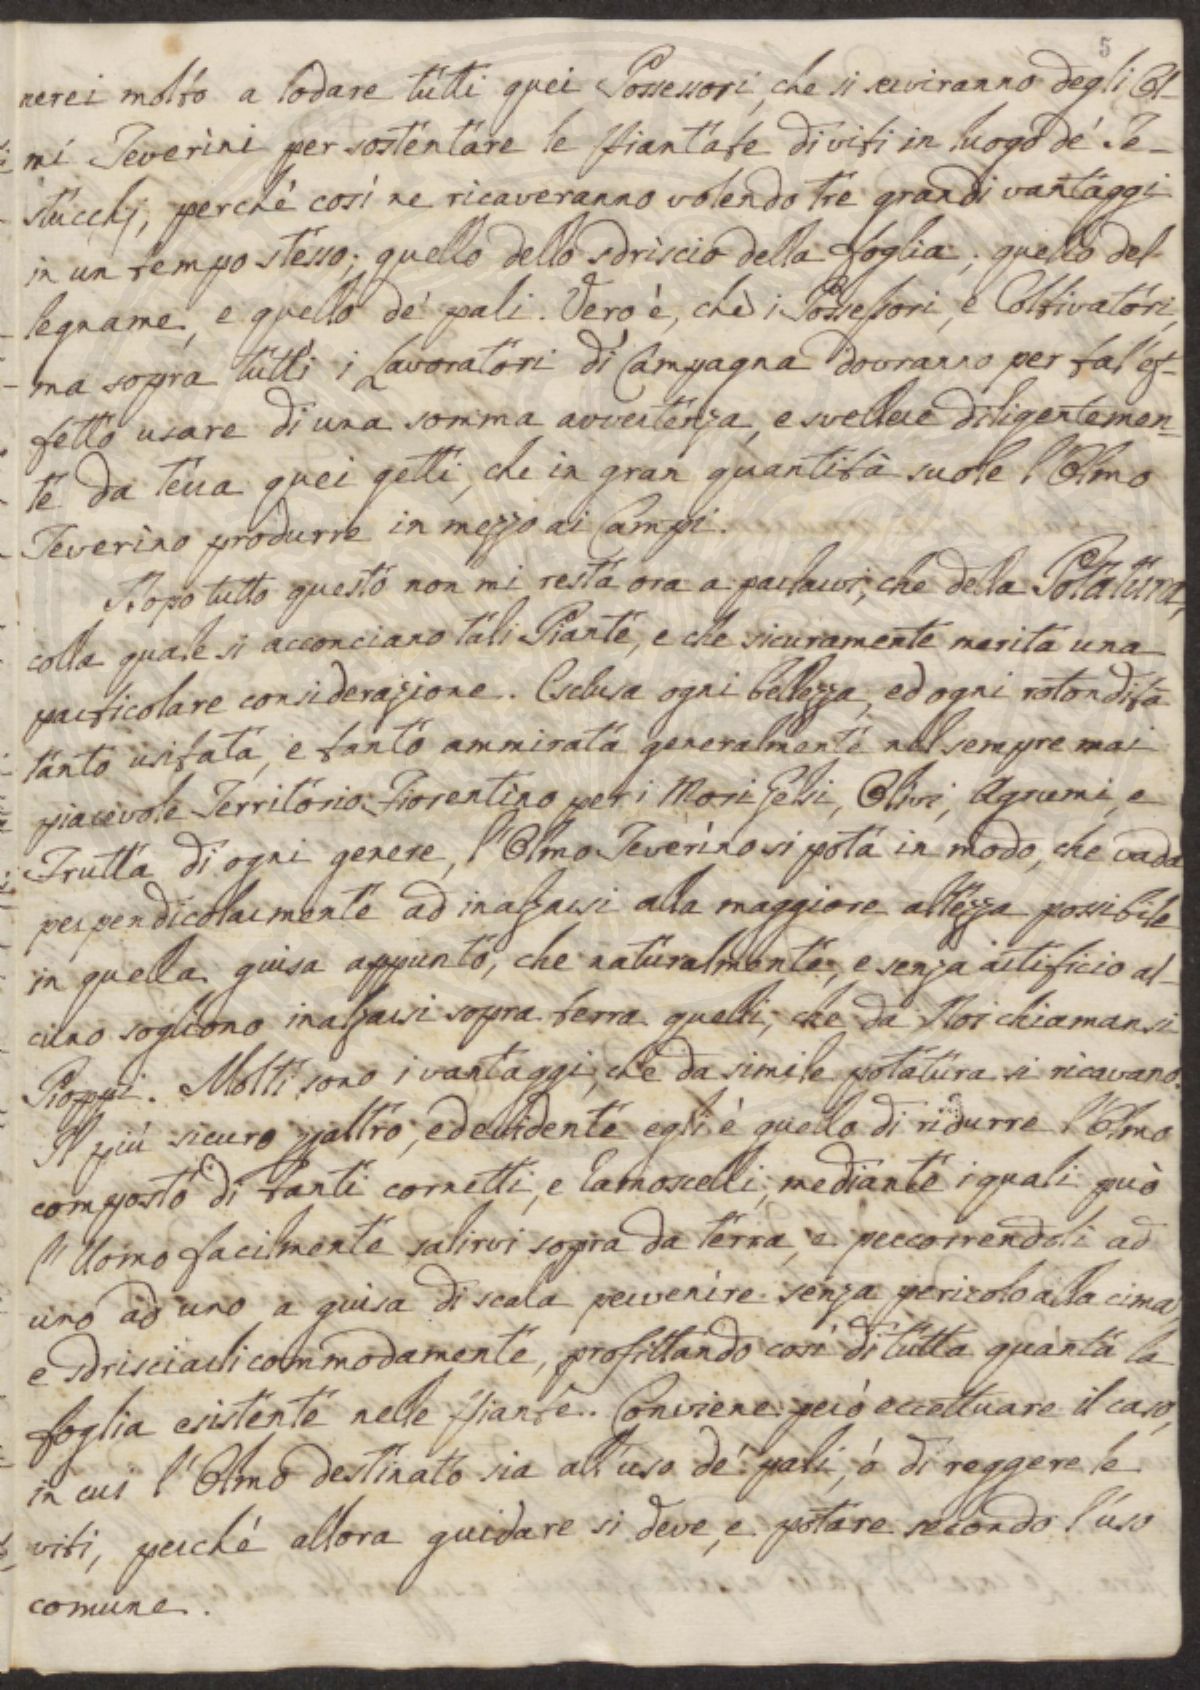 5
nerei molto a lodare tutti quei Possessori, che si serviranno degli Ol-
mi Teverini per sostentare le piantate di viti in luogo de' Te-
stucchj, perchè così ne ricaveranno volendo tre grandi vantaggi
in un tempo stesso; quello dello sdriscio della foglia, quello del
legname, e quello de' pali. Vero è, che i Possessori, e Coltivatori,
ma sopra tutti i Lavoratori di Campagna dovranno per tal ef-
fetto usare di una somma avvertenza, e svellere diligentemen-
te da terra quei getti, che in gran quantità suole l'Olmo
Teverino produrre in mezzo ai Campi.
Dopo tutto questo non mi resta ora a parlarvi, che della Potatura,
colla quale si acconciano tali Piante, e che sicuramente merita una
particolare considerazione. Esclusa ogni bellezza, ed ogni rotondità
tanto usitata, e tanto ammirata generalmente nel sempre mai
piacevole Territorio Fiorentino per i Mori Gelsi, Olivi, Agrumi, e
Frutta di ogni genere, l'Olmo Teverino si pota in modo, che vada
perpendicolarmente ad inalzarsi alla maggiore altezza possibile
in quella guisa appunto, che naturalmente, e senza artificio al-
cuno sogliono inalzarsi sopra terra quelli, che da Noi chiamansi
Pioppi. Molti sono i vantaggi, che da simile potatura si ricavano.
Il più sicuro peraltro, ed evidente egli è quello di ridurre l'Olmo
composto di tanti cornetti, e ramoscelli, mediante i quali può
l'Uomo facilmente salirvi sopra da terra, e percorrendoli ad
uno ad uno a guisa di scala pervenire senza pericolo alla cima,
e sdrisciarli commodamente, profittando così di tutta quanta la
foglia esistente nelle piante. Conviene però eccettuare il caso,
in cui l'Olmo destinato sia all'uso de' pali, ò di reggere le
viti, perchè allora guidare si deve, e potare secondo l'uso
comune.